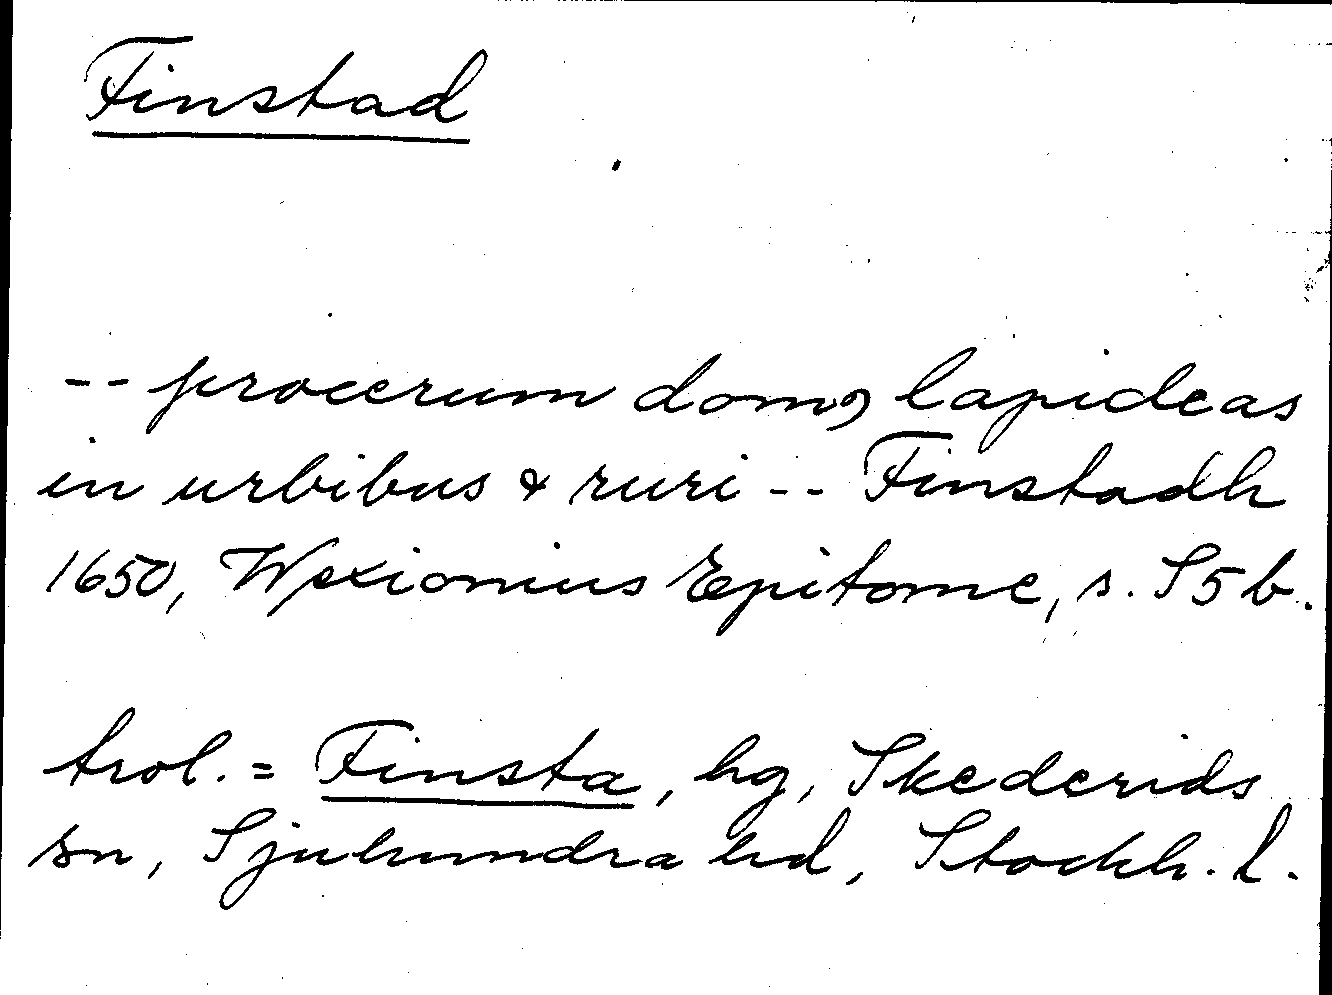 Finstad
-- procerum domꝰ lapideas
in urbibus & ruri -- Finstadh
1650, Wexionius Epitome, s. S5b.
trol. = Finsta, hg, Skederids
sn, Sjuhundra hd, Stockh. l.